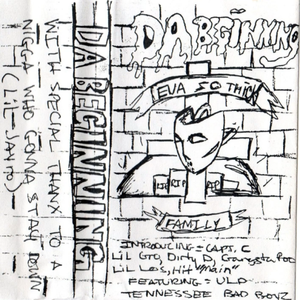 WITH SPECIAL THANX TO A
NIGGA WHO GONNA STAY DOWN
(LIL-JAMES)
DA BEGINNING
DA BEGINNING
EVA SO THICK
RIP
RIP
FAMILY
INTRODUCING = CAPT. C
Lil Gto, Dirty D, Gangsta Poo
Lil Les, Hit "Main"
FEATURING = U.L.P
TENNESSEE BAD BOYZ